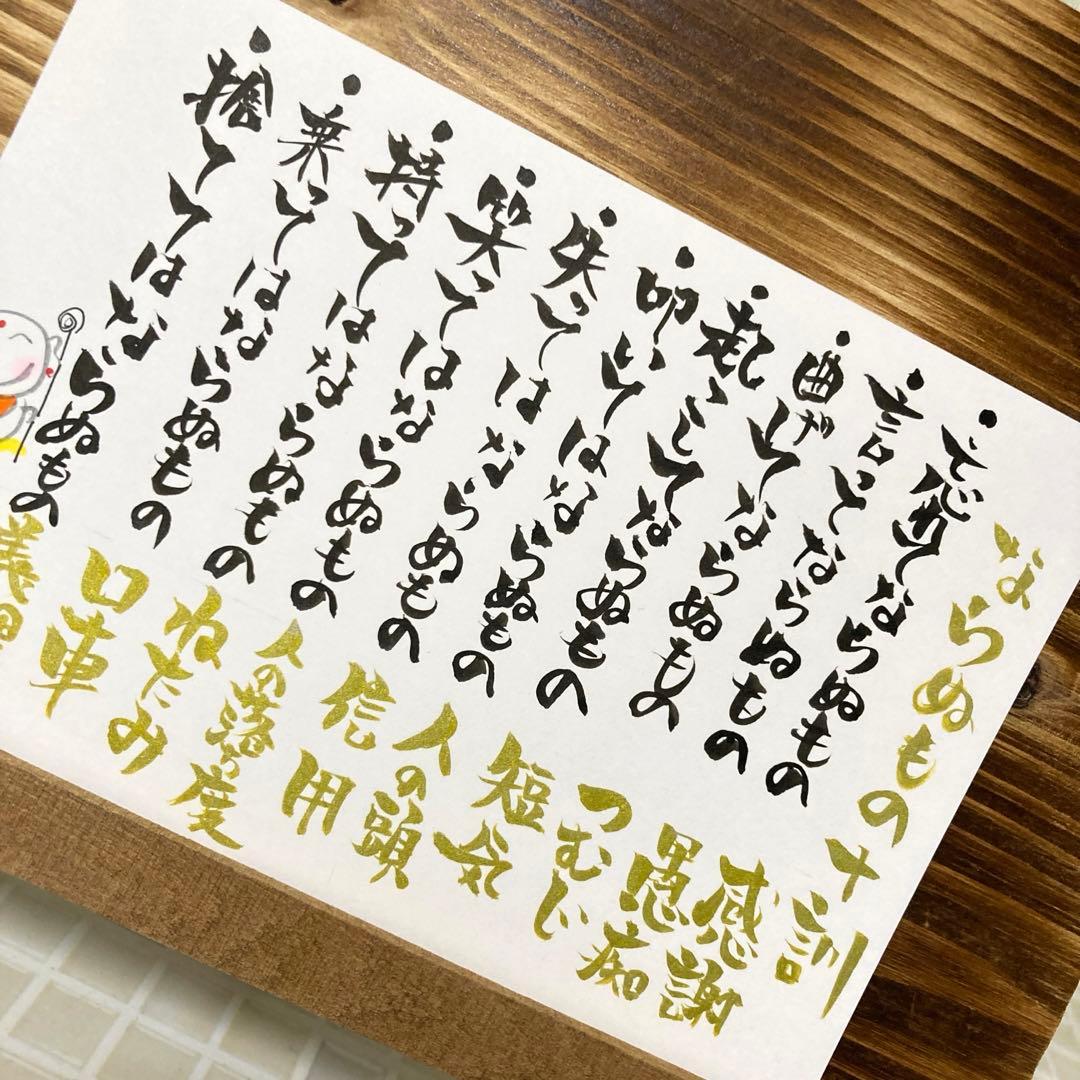 ならぬもの十訓
・忘れてならぬもの 感謝
・言ってならぬもの 愚痴
・曲げてならぬもの つむじ
・起こしてならぬもの 短気
・叩いてはならぬもの 人の頭
・失ってはならぬもの 信用
・笑ってはならぬもの 人の落ち度
・持ってはならぬもの ねたみ
・乗ってはならぬもの 口車
・捨ててはならぬもの 義理